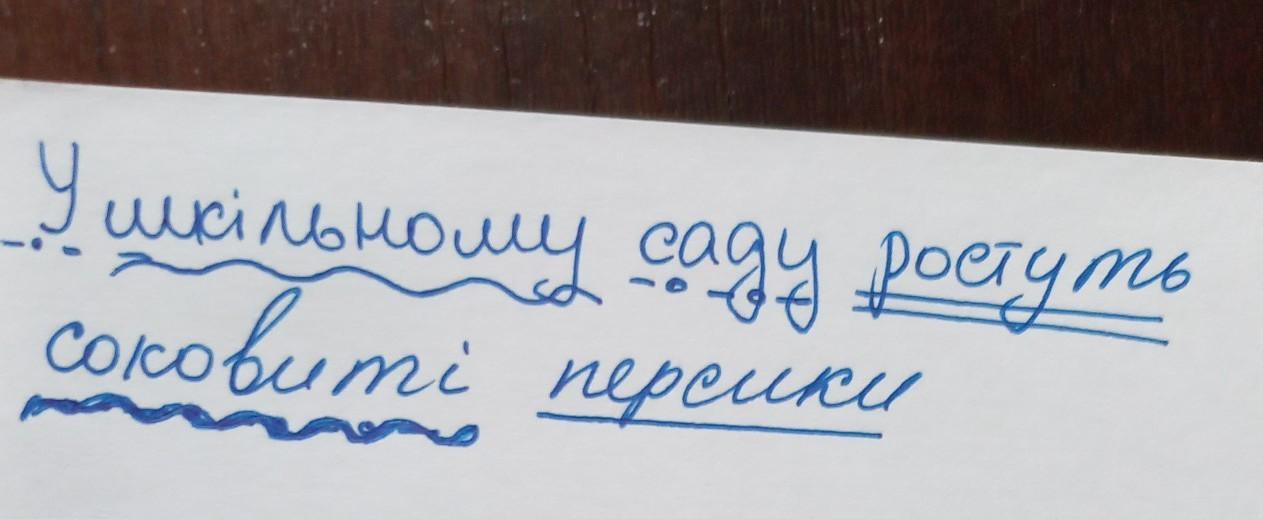 У шкільному саду ростуть
соковиті персики